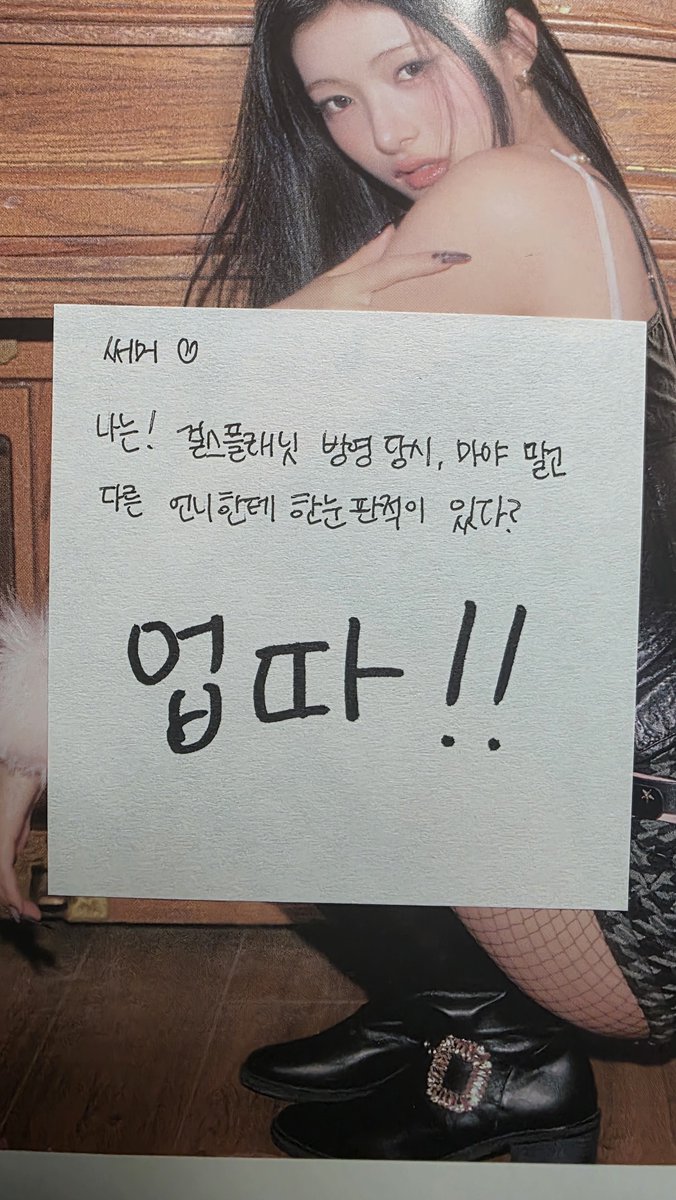 써머 ♡
나는! 걸스플래닛 방영 당시, 마야 말고
다른 언니한테 한눈판적이 있다?
업따!!